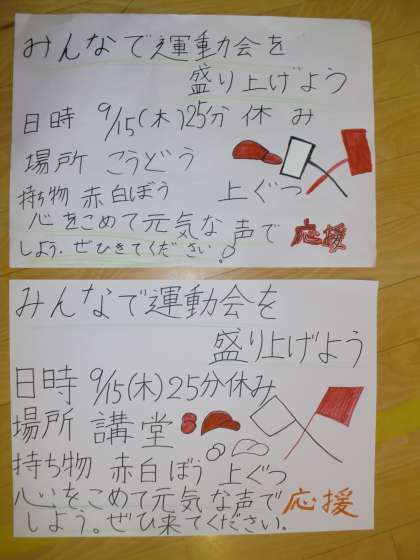 みんなで運動会を
盛り上げよう
日時 9/15(木)25分休み
場所 こうどう
持ち物 赤白ぼう 上ぐつ
心をこめて元気な声で 応援
しよう。ぜひきてください!
みんなで運動会を
盛り上げよう
日時 9/15(木)25分休み
場所 講堂
持ち物 赤白ぼう 上ぐつ
心をこめて元気な声で 応援
しよう。ぜひ来てください。